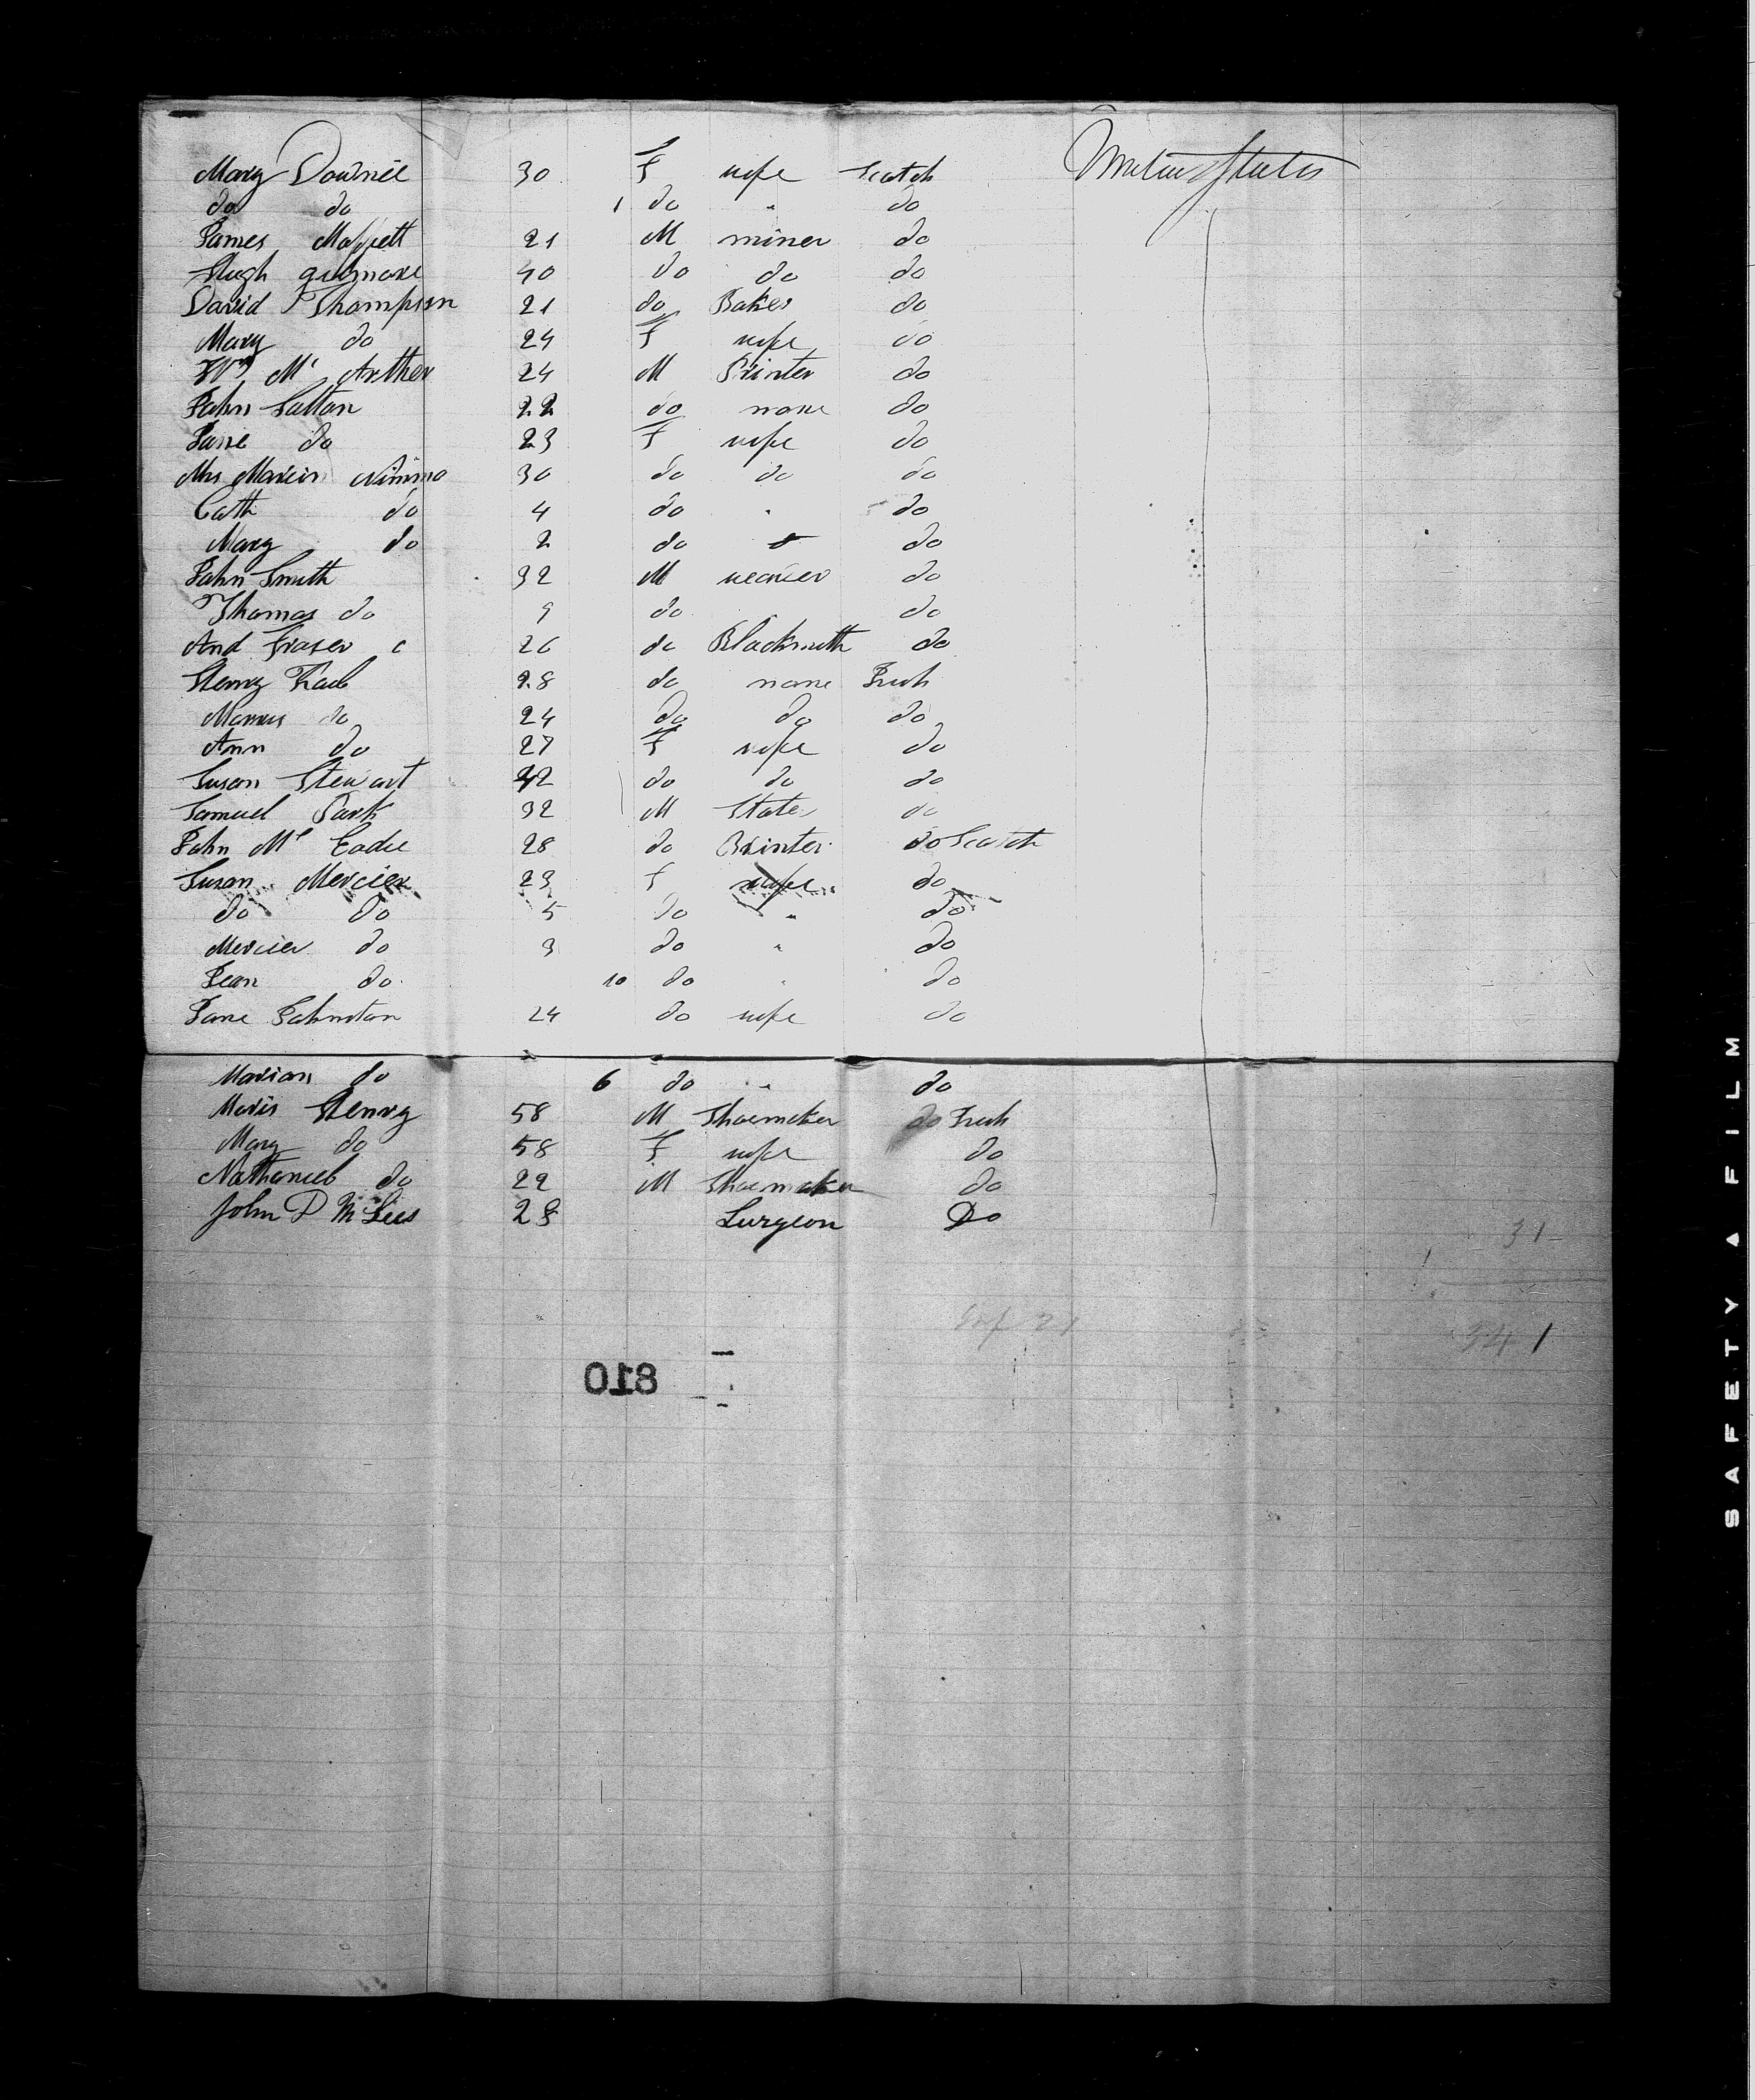 Mary Downie 30 F wife Scotch United States
do do 1 do " do
James Moffett 21 M miner do
Hugh gilmore 40 do do do
David Thompson 21 do Baker do
Mary do 24 F wife do
Wm Mc Arther 24 M Printer do
John Salton 22 do none do
Jane do 23 F wife do
Mrs Marion Nimmo 30 do do do
Cath do 4 do " do
Mary do 2 do do
John Smith 32 M weaver do
Thomas do 9 do do
And Fraser 26 do Blacksmith do
Henry 28 do none Irish
do 24 do do do
Ann do 27 F wife do
Susan Stewart do do do
Samuel Park 32 M do
John Mc Eadie 28 do Printer do Scotch
Susan Mercier 23 F wife do
do do 5 do " do
Mercier do 3 do " do
Jean do 10 do " do
Jane Johnston 24 do wife do
Marian do 6 do " do
Henry 58 M Shoemaker do Irish
Mary do 58 F wife do
Nathaniel do 22 M Shoemaker do
John P McLees 28 Surgeon Do
31
341
018
SAFETY FILM